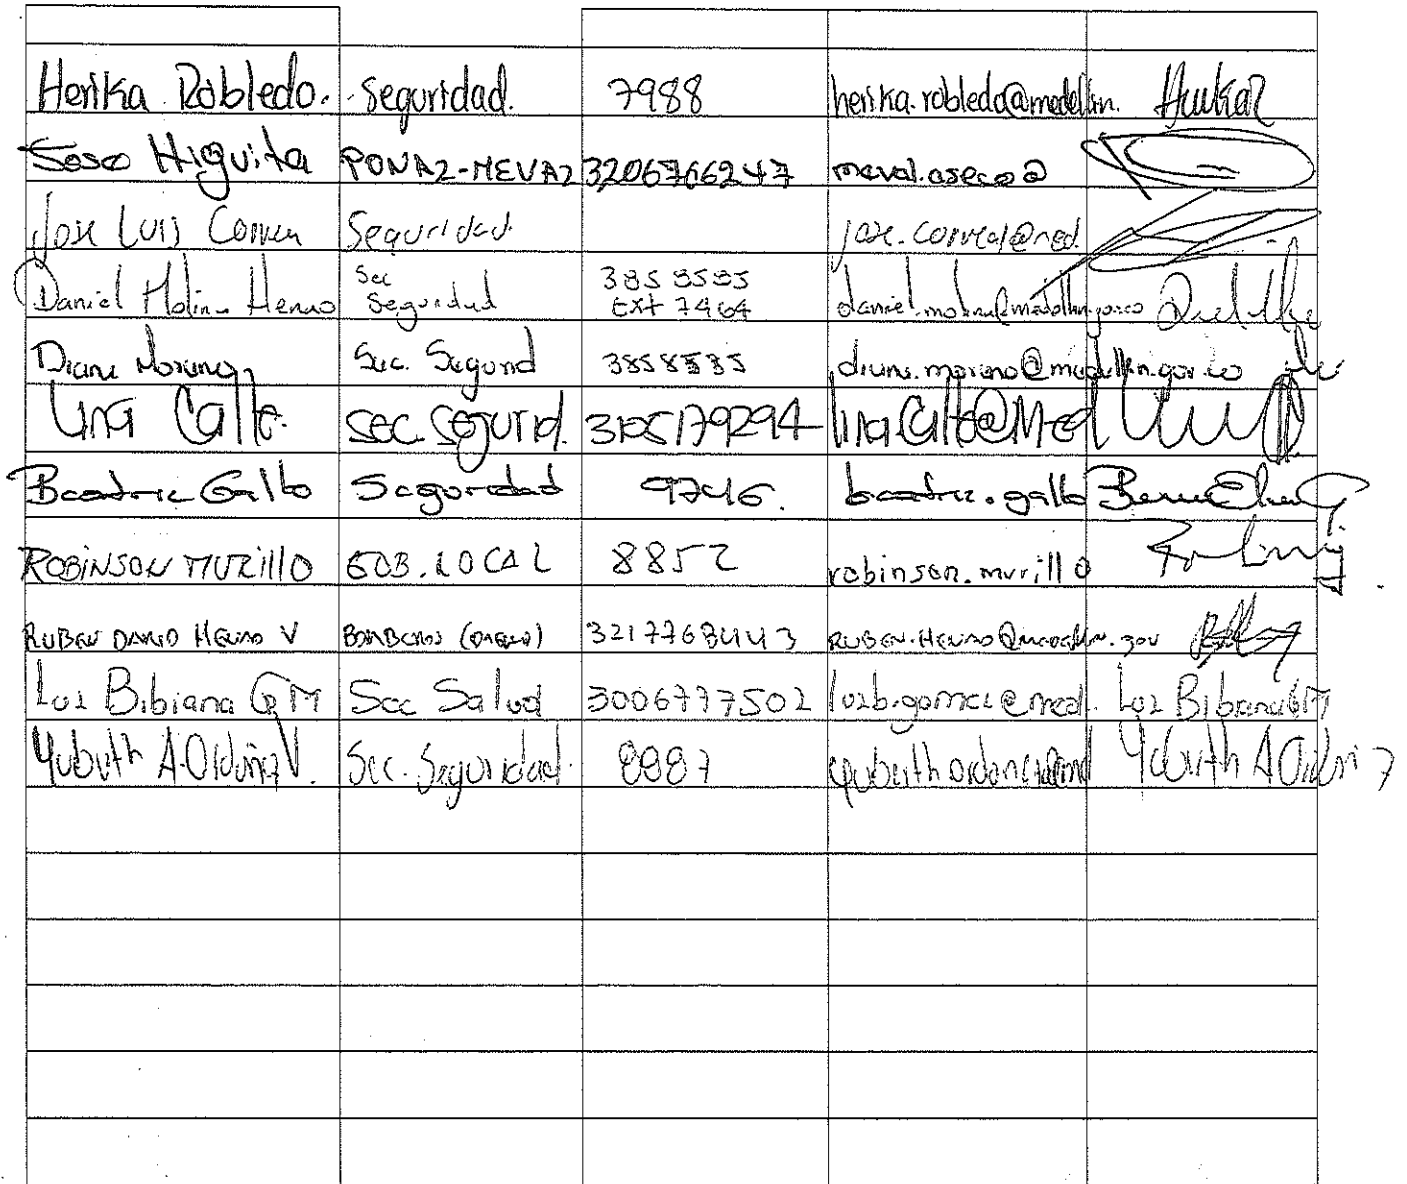 Herika Robledo. Seguridad. 7988 herika.robledo@medellin. HerikaR
Higuita PONAL-MEVAL 3206766247 meval.aseco@
Jose Luis Correa Seguridad jose.correa@med.
Daniel Molina Henao Sec Seguridad 385 5555 Ext 7464
Diana Moreno Sec. Segurid 3858555 diana.moreno@medellin.gov.co
Lina Calle. Sec. Segurid. 3105179294 lina.calle@Med
Beatriz Gallo Seguridad 9746. beatriz.gallo
ROBINSON MURILLO GOB. LOCAL 8852 robinson.murillo
RUBEN DARIO HENAO V BOMBEROS 3217768443 RUBEN.HENAO@medellin.gov
Luz Bibiana G M Sec Salud 3006777502 luzb.gomez@med. Luz Bibiana GM
Yubeith A. Ordoñez V. Sec. Seguridad. 8987